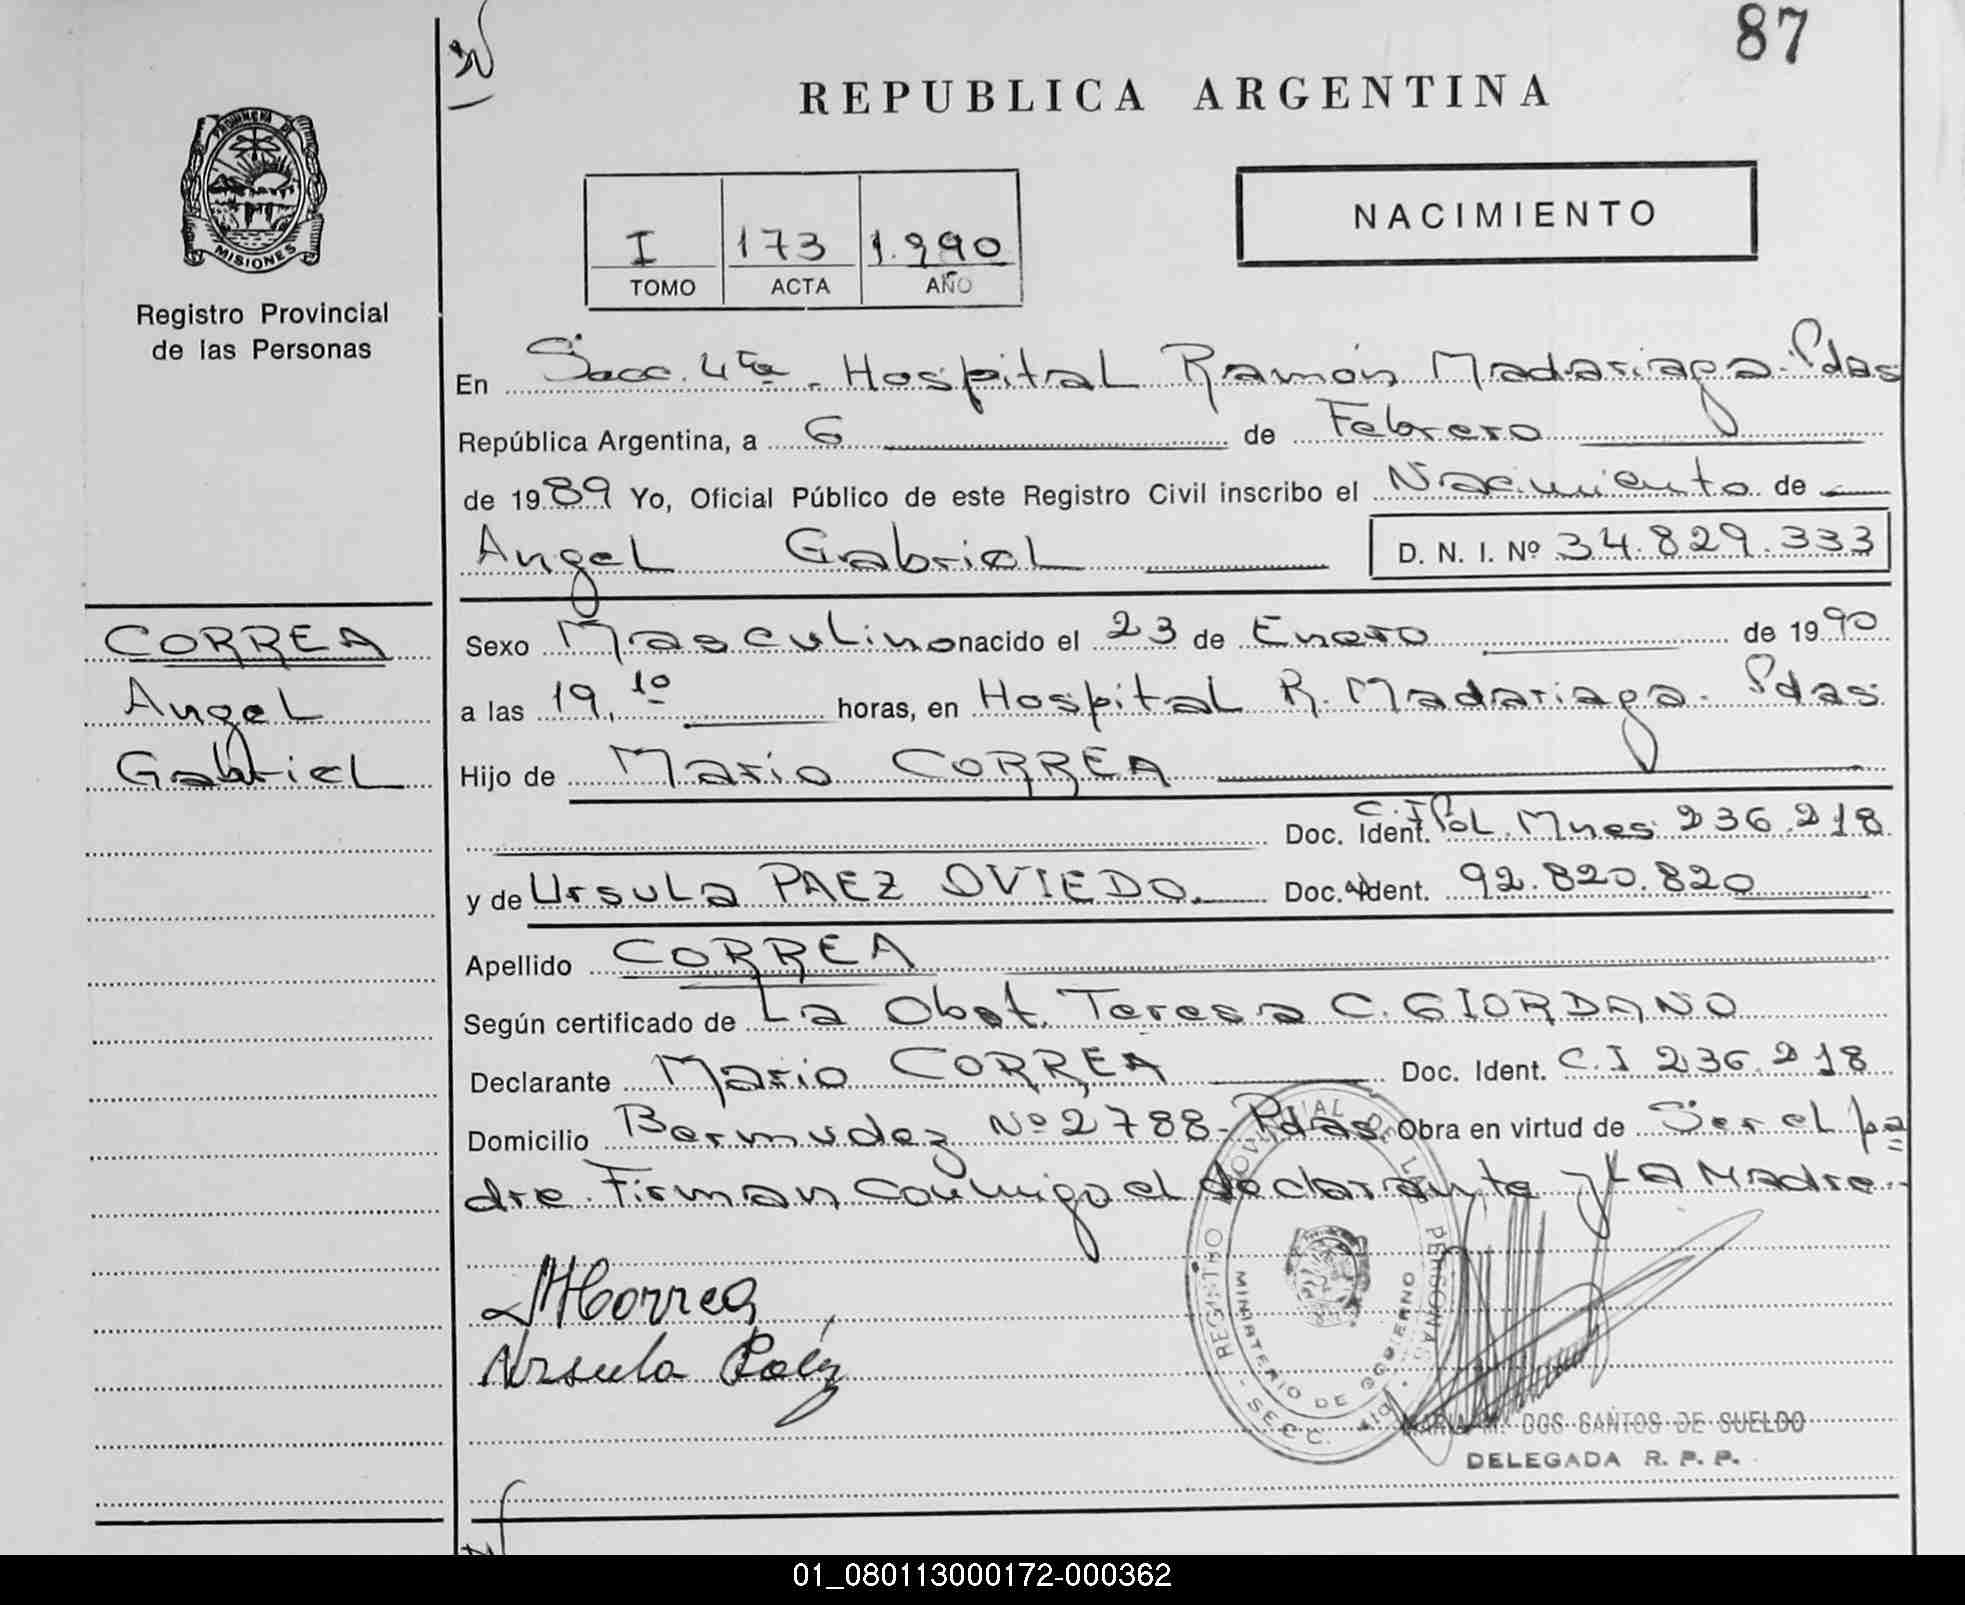 87
REPUBLICA ARGENTINA
PROVINCIA DE
MISIONES
Registro Provincial
de las Personas
NACIMIENTO
I 173 1.990
TOMO ACTA AÑO
En Secc. 4ta. Hospital Ramón Madariaga. Pdas
República Argentina, a 6 de Febrero
de 1989 Yo, Oficial Público de este Registro Civil inscribo el Nacimiento de
Angel Gabriel D. N. I. Nº 34.829.333
CORREA
Angel
Gabriel
Sexo Masculino nacido el 23 de Enero de 1990
a las 19,10 horas, en Hospital R. Madariaga. Pdas
Hijo de Mario CORREA
Doc. Ident. C.I Pol. Mnes 236.218
y de Ursula PAEZ OVIEDO. Doc. Ident. 92.820.820
Apellido CORREA
Según certificado de La Obst. Teresa C. GIORDANO
Declarante Mario CORREA Doc. Ident. C.I 236.218
Domicilio Bermudez Nº 2788- Pdas. Obra en virtud de Ser el pa
dre. Firman conmigo el declarante y LA Madre.-
MCorrea
Ursula Paéz
REGISTRO PROVINCIAL DE LAS PERSONAS
MINISTERIO DE GOBIERNO
SECC. 4ta.
MARIA M. DOS SANTOS DE SUELDO
DELEGADA R. P. P.
01_080113000172-000362